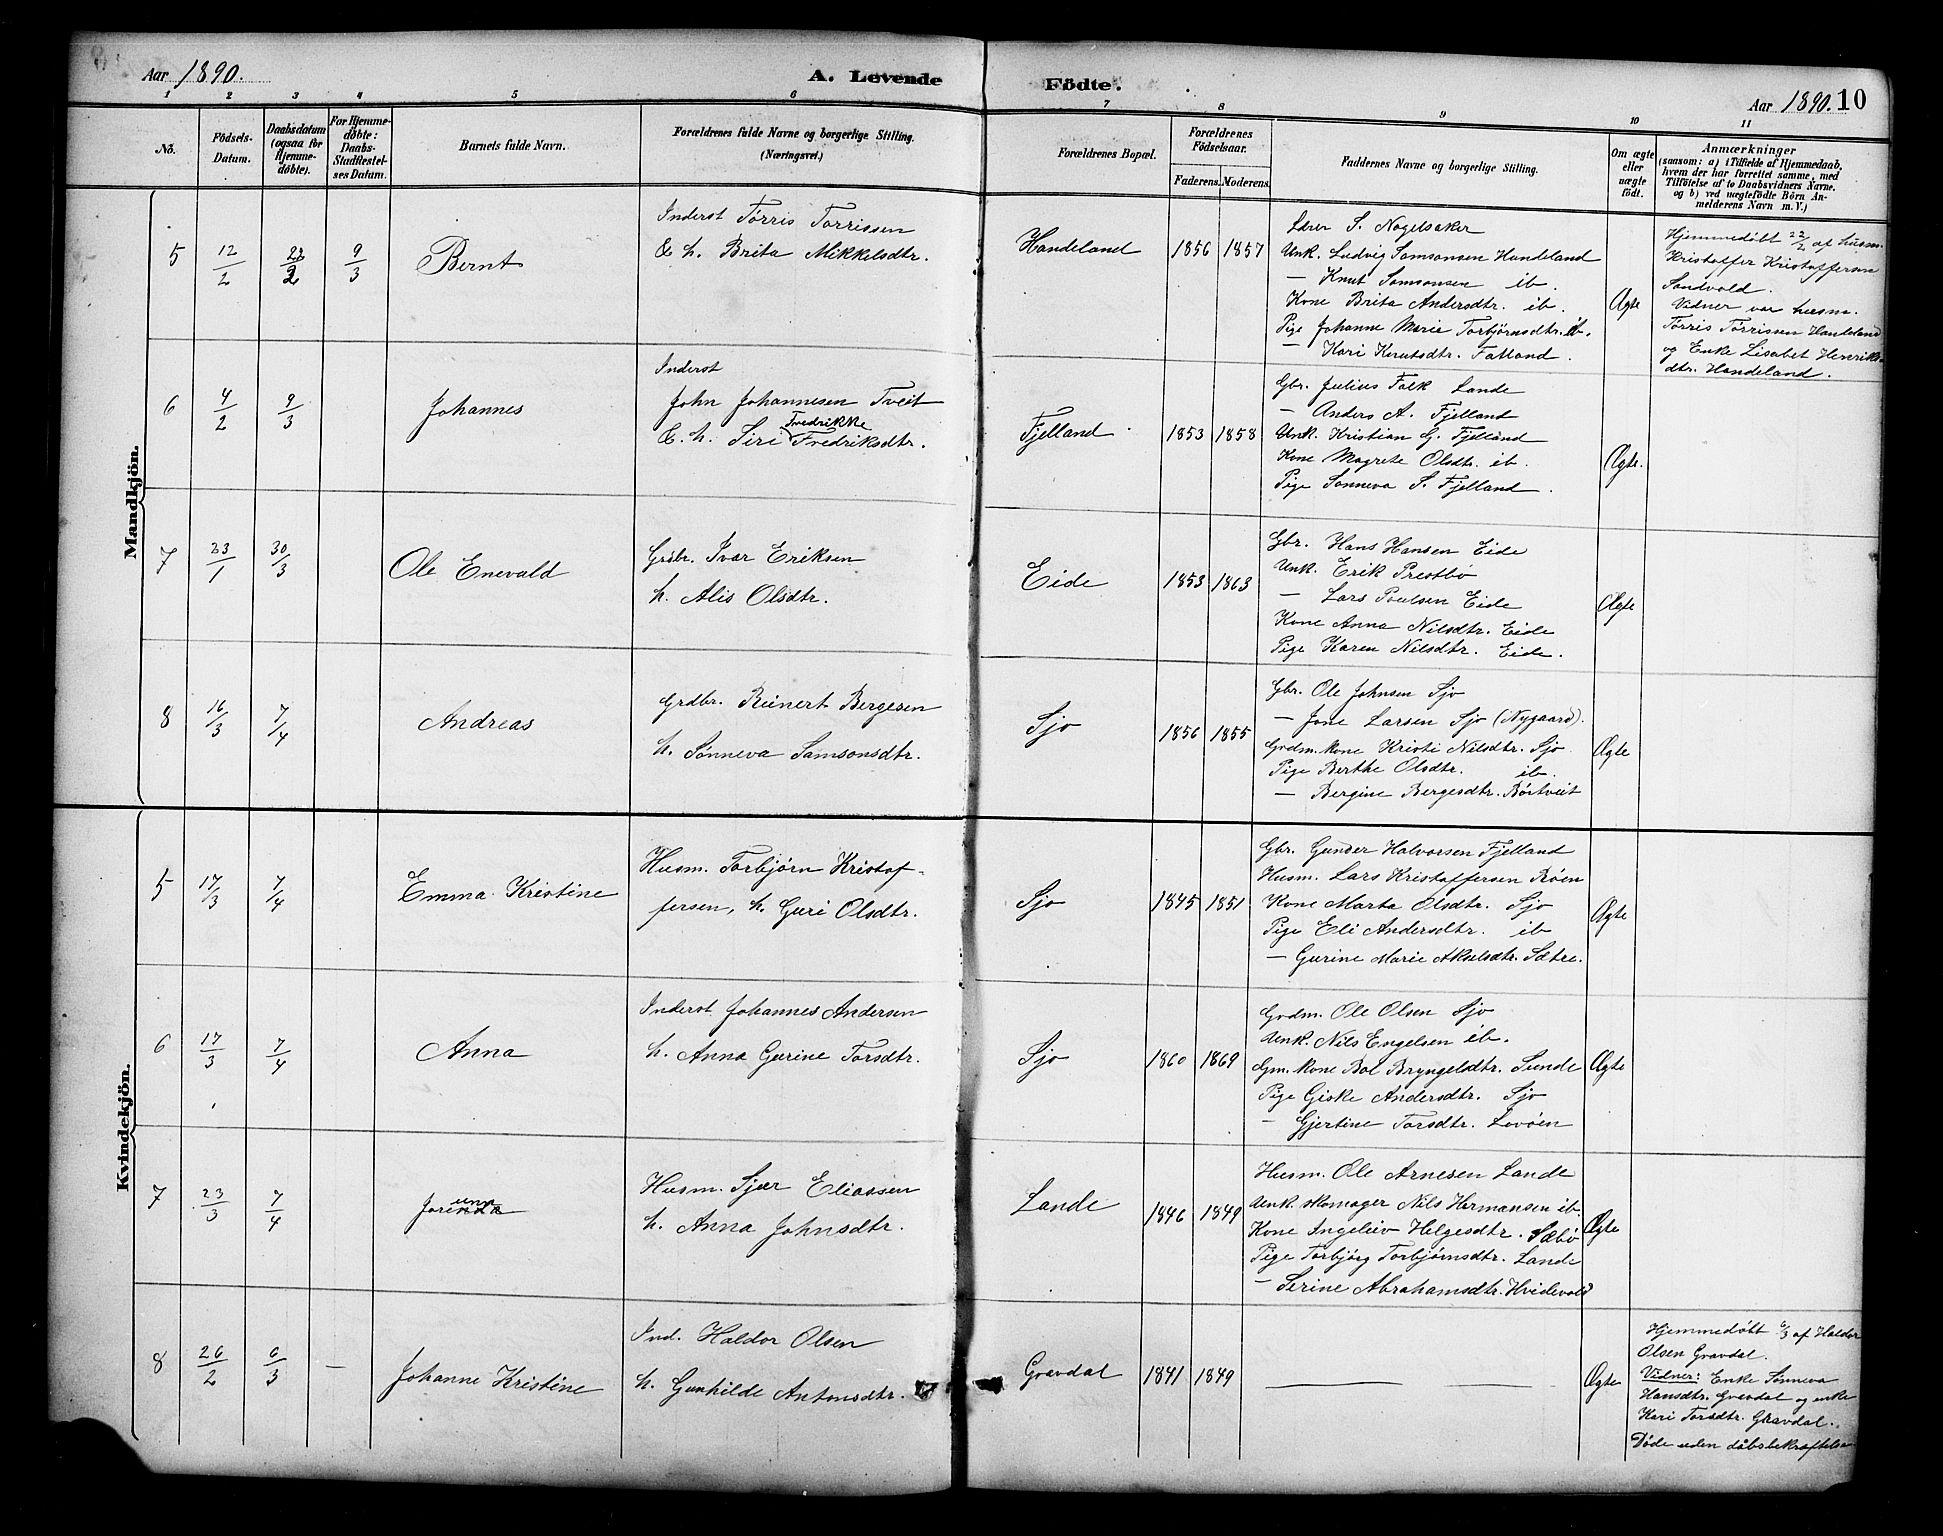 Aar 1890. A. Levende Födte. Aar 1890. 10
1 2 3 4 5 6 7 8 9 10 11
No.
Födsels-
Datum.
Daabsdatum
(ogsaa för
Hjemme-
døbte).
For Hjemme-
døbte:
Daabs-
Stadfæstel-
ses Datum.
Barnets fulde Navn.
Forældrenes fulde Navne og borgerlige Stilling.
(Næringsvei.)
Forældrenes Bopæl.
Forældrenes
Födselsaar.
Faderens. Moderens.
Faddernes Navne og borgerlige Stilling.
Om ægte
eller
uægte
født.
Anmærkninger
(saasom: a) i Tilfælde af Hjemmedaab,
hvem der har forrettet samme, med
Tilföielse af to Daabsvidners Navne.
og b) ved uægtefødte Börn An-
melderens Navn m. V.)
Mandkjön.
5 12/2 22/2 9/3 Bernt
Inderst Tørris Torrissen
E. h. Brita Mikkelsdtr.
Handeland 1856 1857
Lærer S. Nagelsaker
Unk. Ludvig Samsonsen Handeland
— Knut Samsonsen ib.
Kone Brita Andersdtr. ib.
Pige Johanne Marie Torbjørnsdtr. ib.
— Kari Knutsdtr. Fatland.
Ægte
Hjemmedøbt 22/2 af husm.
Kristoffer Kristoffersen
Sandvold.
Vidner var husm.
Tørris Tørrissen Handeland
og Enke Lisabet Henriks-
dtr. Handeland.
6 4/2 9/3 Johannes
Inderst
John Johannesen Tveit
Fredrikke
E. h. Siri Fredriksdtr.
Fjelland 1853 1858
Gbr. Julius Falk Lande
— Anders A. Fjelland
Unk. Kristian G. Fjelland
Kone Magrete Olsdtr. ib.
Pige Sønneva S. Fjelland.
Ægte.
7 23/1 30/3 Ole Enevald
Grdbr. Ivar Eriksen
h. Alis Olsdtr.
Eide 1853 1863
Gbr. Hans Hansen Eide
Unk. Erik Prestbø
— Lars Poulsen Eide
Kone Anna Nilsdtr. Eide
Pige Karen Nilsdtr. Eide.
Ægte
8 16/3 7/4 Andreas
Grdbr. Reinert Bergesen
h. Sønneva Samsonsdtr.
Sjo 1856 1855
Gbr. Ole Johnsen Sjo
— Jone Larsen Sjo (Nygaard).
Grdm. kone Kristi Nilsdtr. Sjo
Pige Berthe Olsdtr. ib.
— Bergine Bergesdtr. Børtveit
Ægte
Kvindekjön.
5 17/3 7/4 Emma Kristine
Husm. Torbjørn Kristof-
fersen, h. Guri Olsdtr.
Sjo 1845 1851
Gbr. Gunder Halvorsen Fjelland
Husm. Lars Kristoffersen Røen
Kone Marta Olsdtr. Sjo
Pige Eli Andersdtr. ib
— Gurine Marie Akselsdtr. Sætre.
Ægte
6 17/3 7/4 Anna
Inderst Johannes Andersen
h. Anna Gurine Torsdtr.
Sjo 1860 1869
Grdm. Ole Olsen Sjo
Unk. Nils Engelsen ib.
Gm. kone Bol Bryngeldtr. Sunde
Pige Giske Andersdtr. Sjo
— Gjertine Torsdtr. Lovøen
Ægte
7 23/3 7/4
una
Jorinda
Husm. Sjær Eliassen
h. Anna Johnsdtr.
Lande 1846 1849
Husm. Ole Arnesen Lande
Unk. skomager Nils Hermansen ib.
Kone Ingeleiv Helgesdtr. Sæbø
Pige Torbjørg Torbjørnsdtr. Lande
— Serine Abrahamsdtr. Hvidevold
Ægte
8 26/2 6/3 — Johanne Kristine
Ind. Haldor Olsen
h. Gunhilde Antonsdtr.
Gravdal 1841 1849
Ægte
Hjemmedøbt 6/3 af Haldor
Olsen Gravdal.
Vidner: Enke Sønneva
Hansdtr. Gravdal og enke
Kari Torsdtr. Gravdal.
Døde uden dåbsbekræftelse